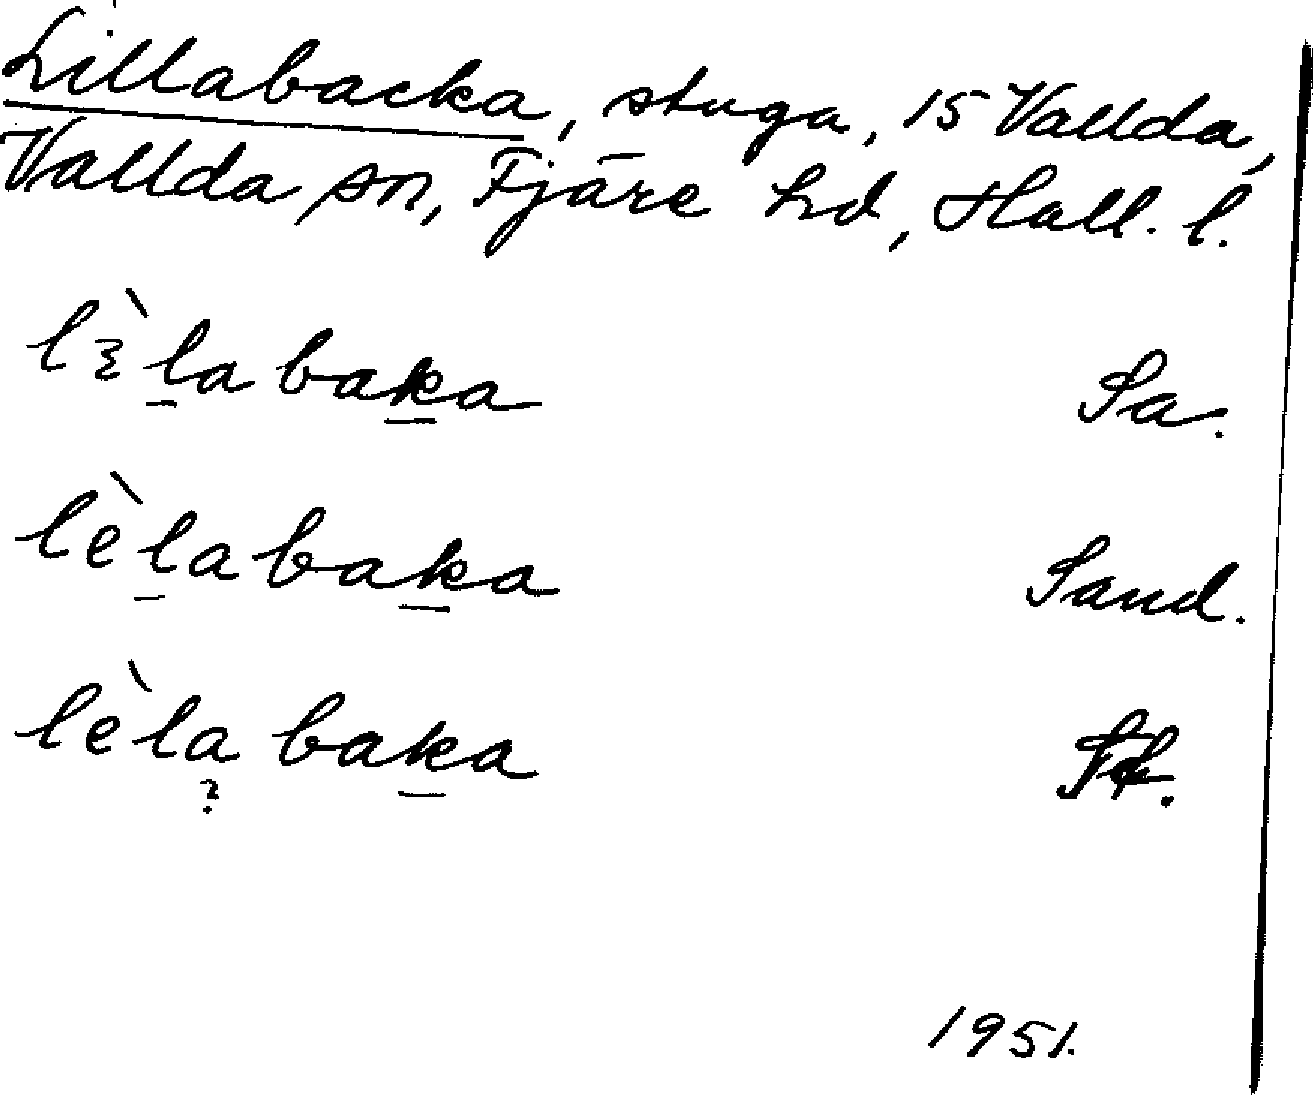 Lillabacka, stuga, 15 Vallda,
Vallda sn, Fjäre hd, Hall. l.
lɛ̀l̲abak̲a Sa.
lèl̲abak̲a Sand.
lèlabak̲a
?
1951.